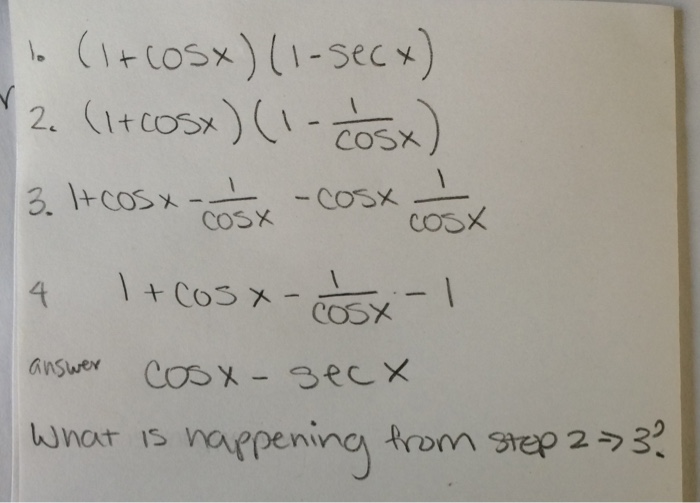 1. (1+cosx)(1-secx)
2. (1+cosx)(1-1/cosx)
3. 1+cosx-1/cosx -cosx 1/cosx
4 1+cosx-1/cosx-1
answer cosx-secx
What is happening from step 2=>3?